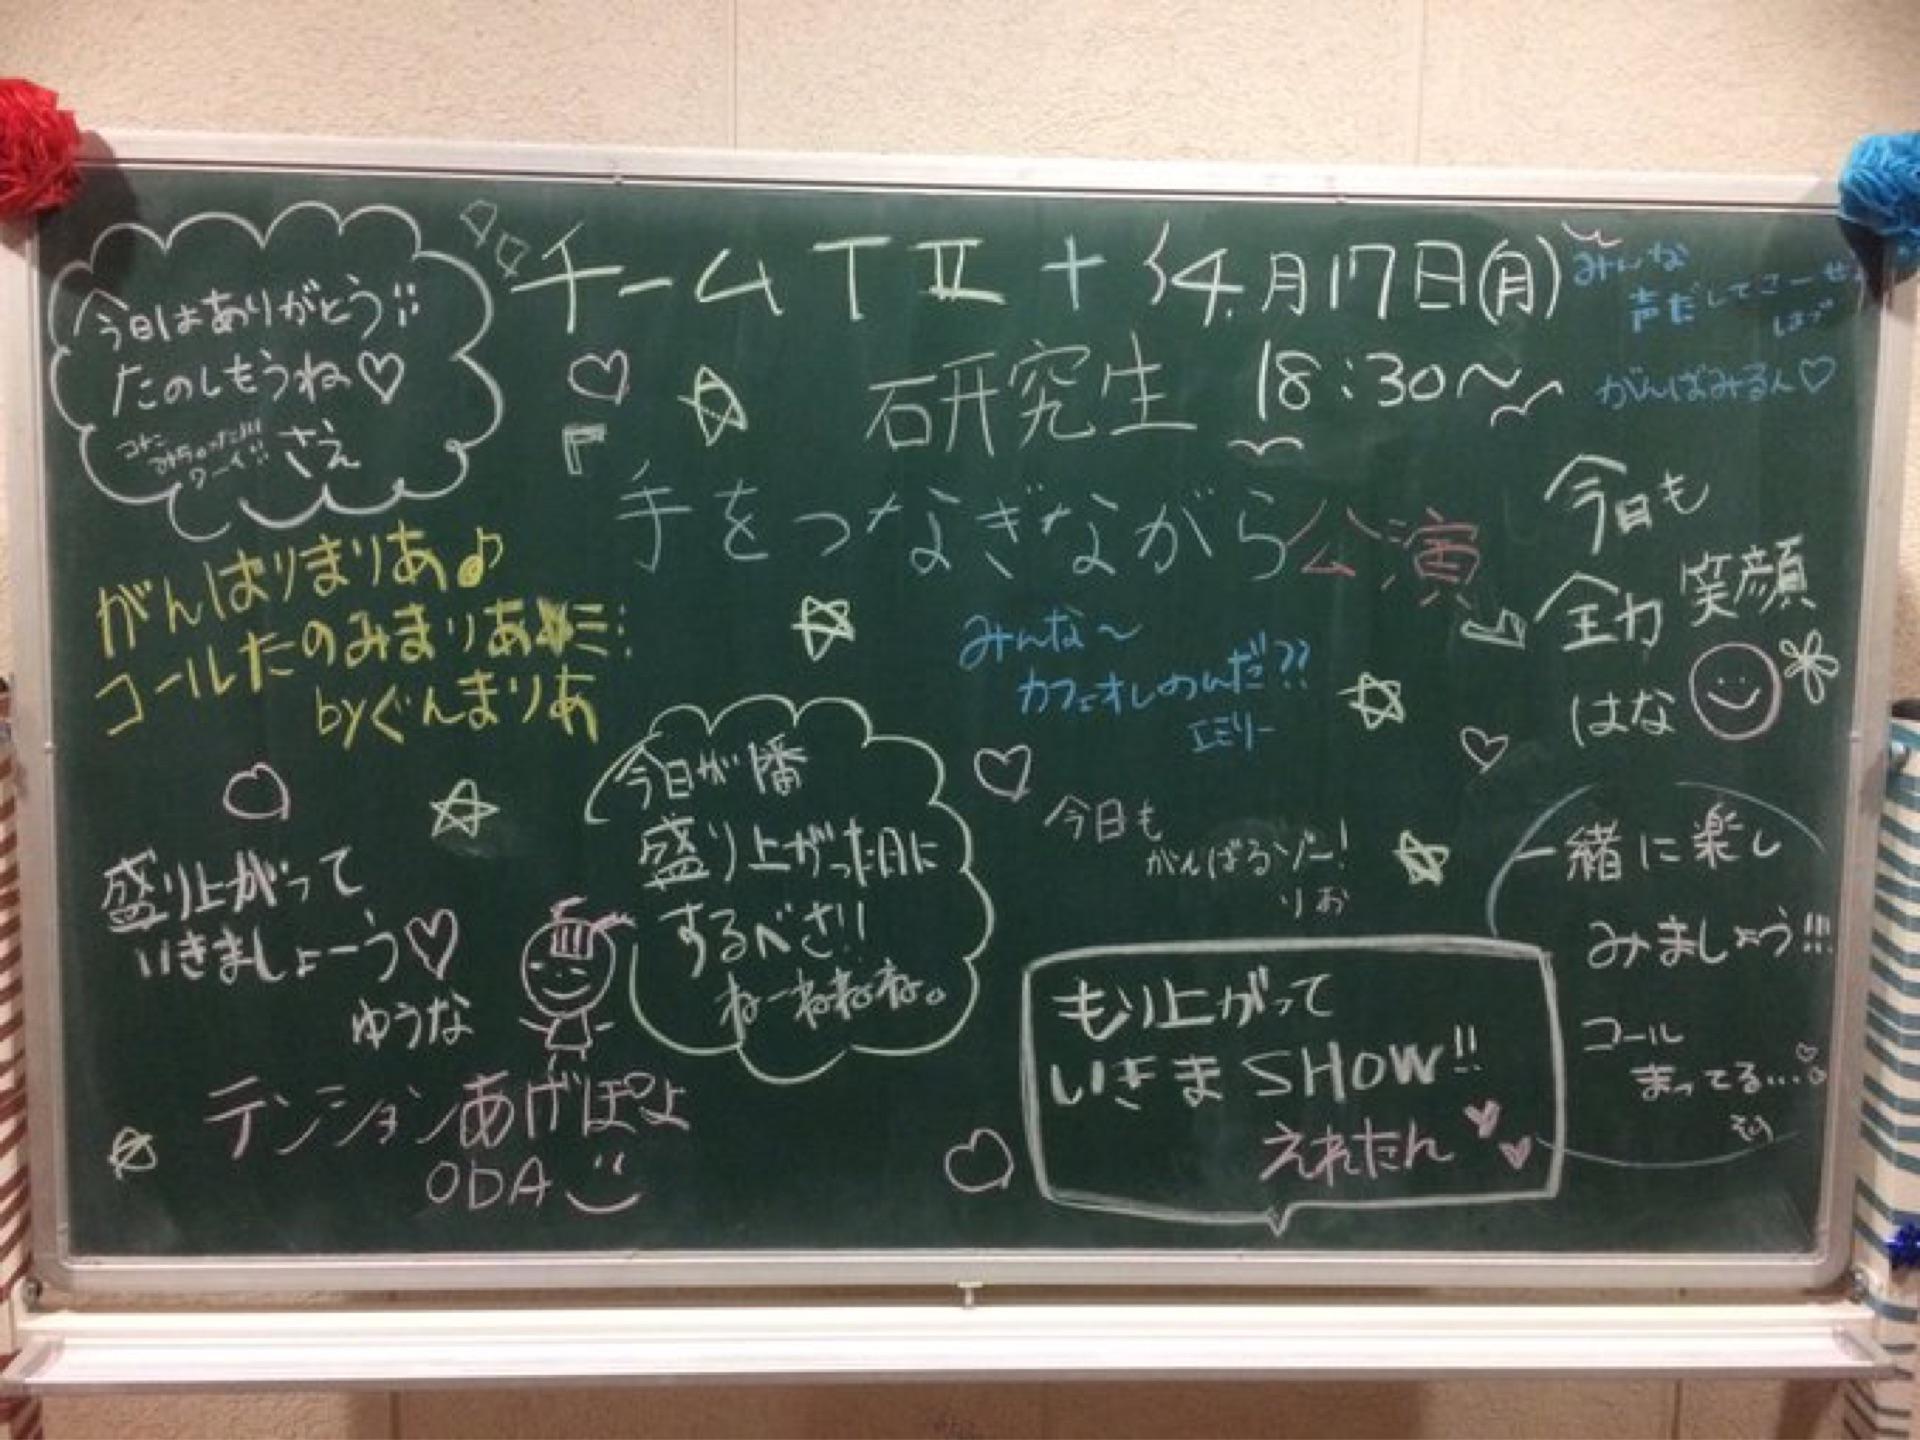 チームTⅡ + 4.月17日(月)
研究生 18:30〜
「手をつなぎながら公演」
今日はありがとう!!
たのしもうね♡
さえ
みんな
声だしてこーぜ
がんばみるん♡
がんばりまりあ♪
コールたのみまりあ
byぐんまりあ
みんな〜
カフェオレのんだ??
エミリー
今日も
全力 笑顔
はな
盛り上がって
いきましょーう♡
ゆうな
今日が1番
盛り上がった日に
するべさ!!
ねーねねね。
今日も
がんばるゾー!
りお
一緒に楽し
みましょう!!!
コール
まってる...
テンションあげぽよ
ODA
もり上がって
いきまSHOW!!
えれたん